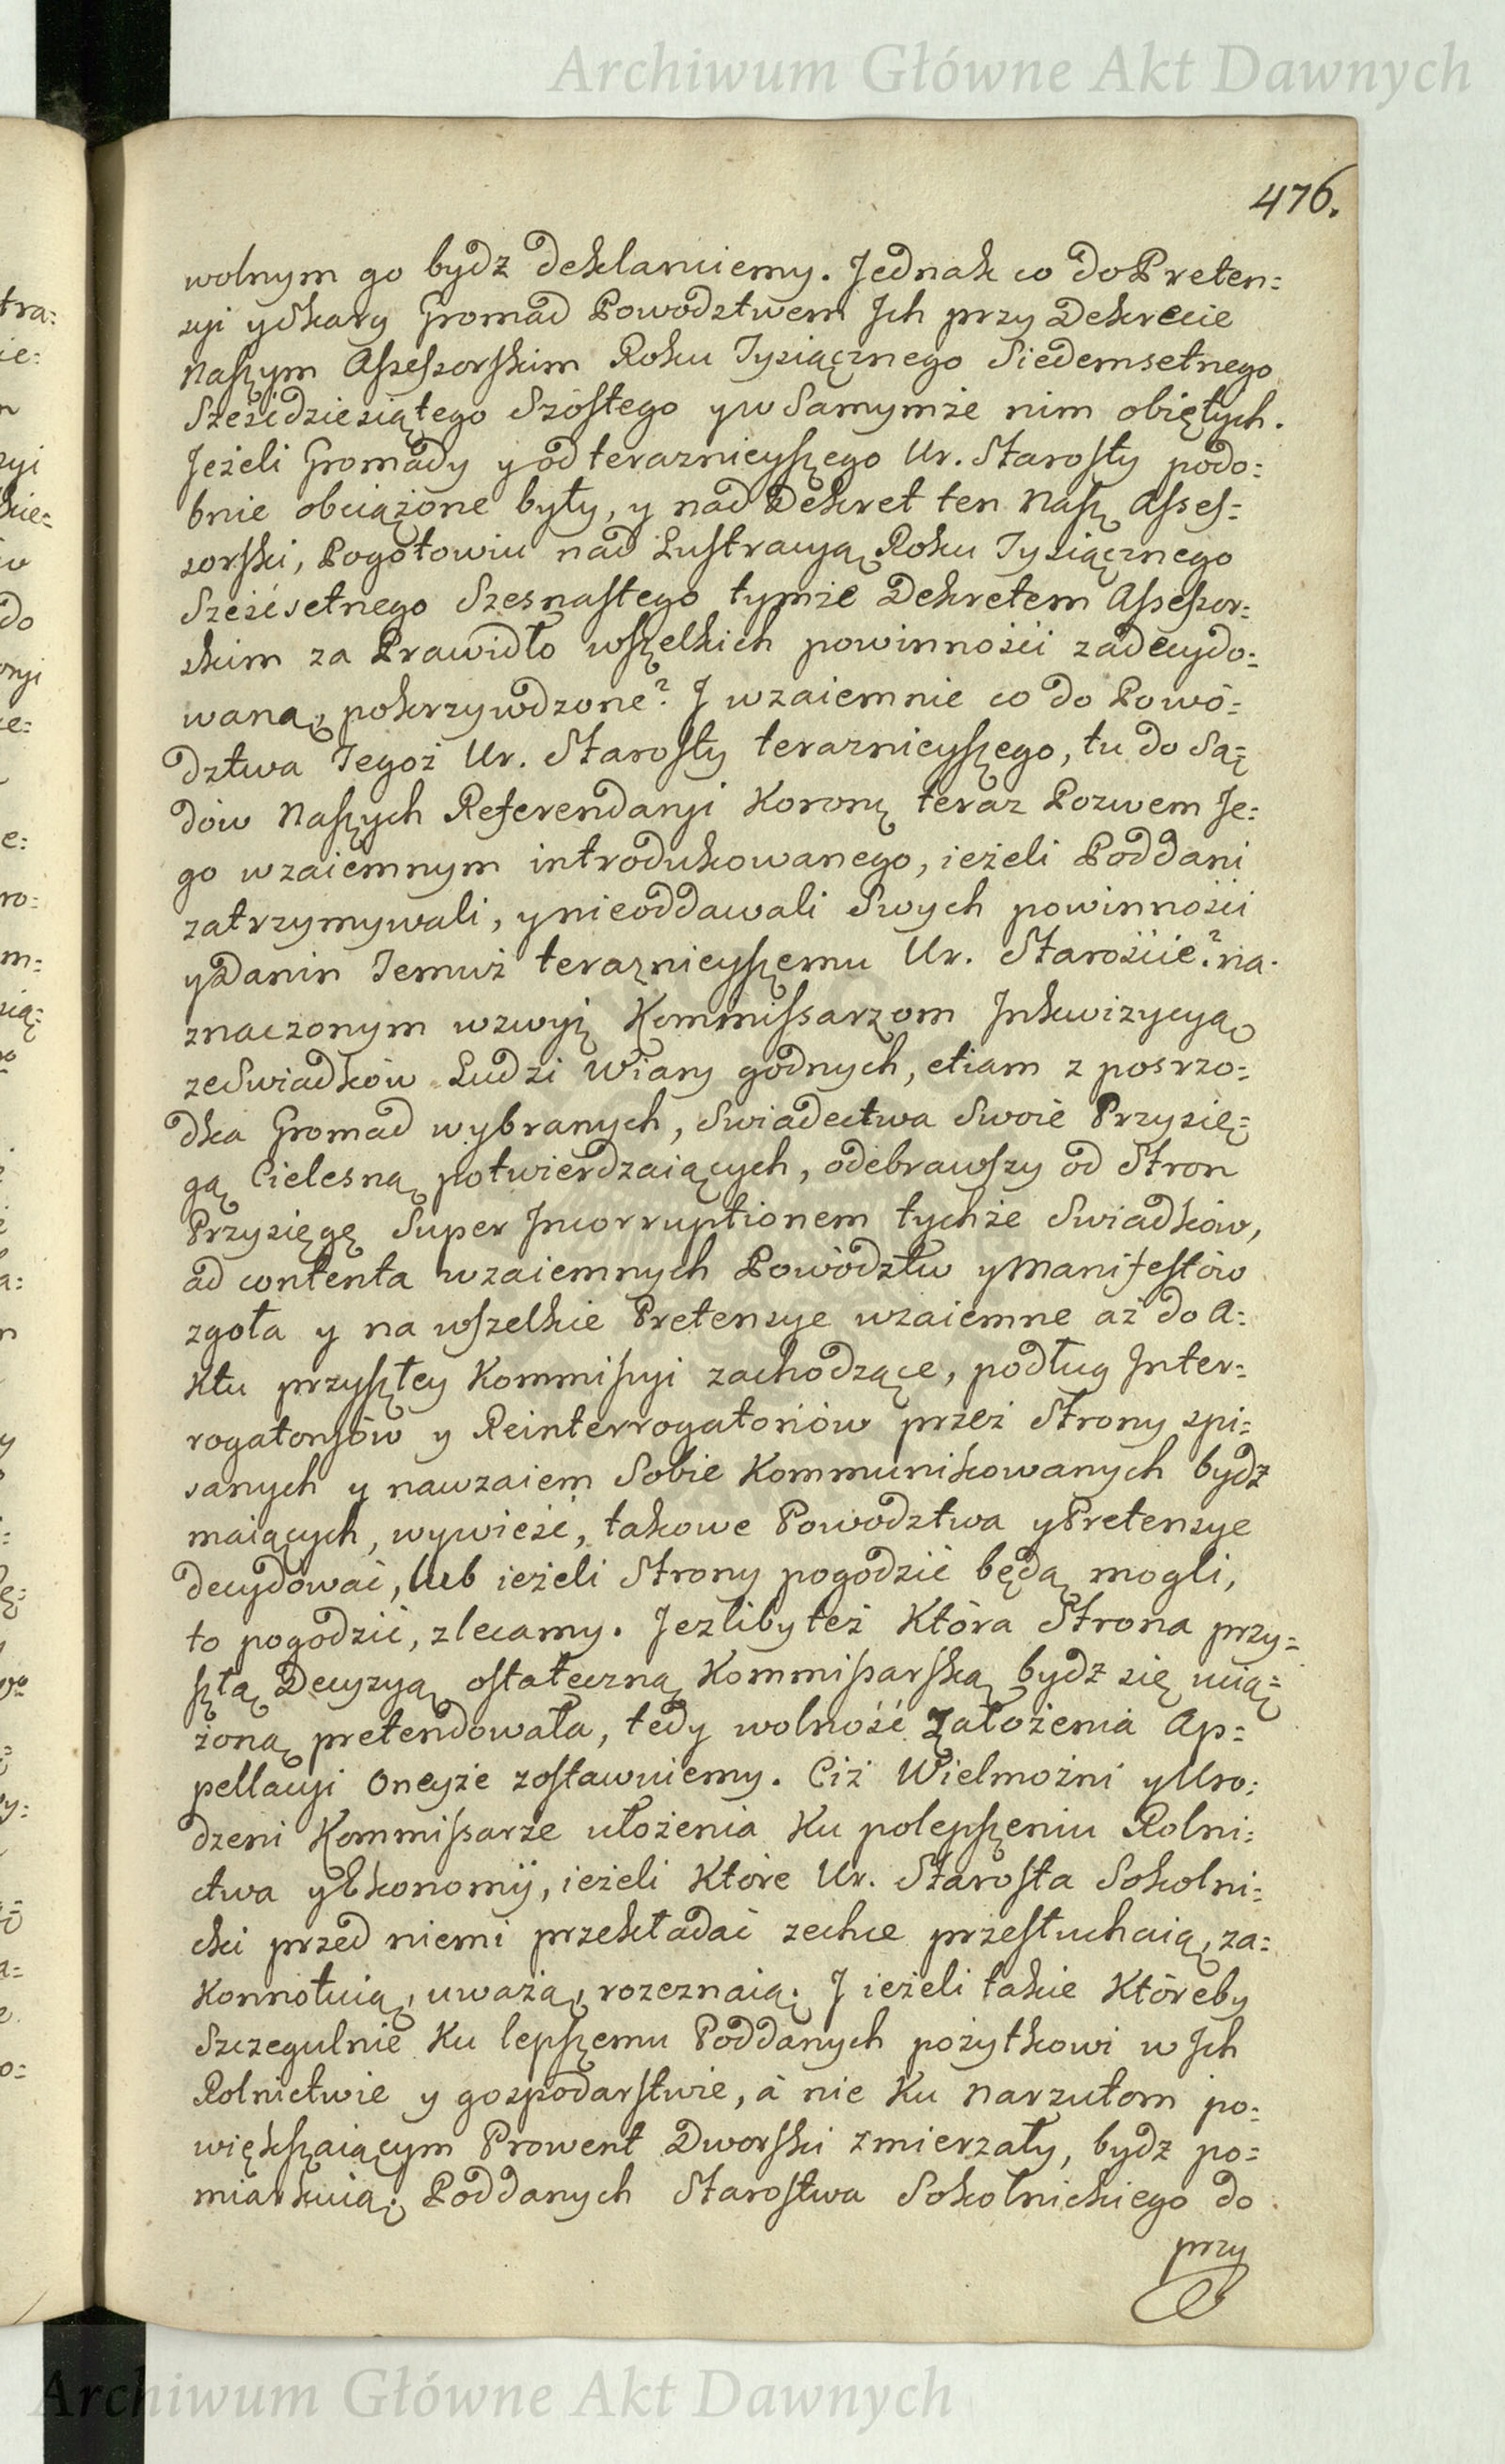 Archiwum Główne Akt Dawnych
476.
wolnym go bydz deklaruiemy. Jednak co do Preten:
syi y Skarg Gromad Powodztwem Jch przy Dekrecie
Naszym Assessorskim Roku Tysiącznego Siedemsetnego
Sześćdziesiątego Szóstego y w Samymże nim obiętych.
Jeżeli Gromady y od teraznieyszego Ur. Starosty podo:
bnie obciążone były, y nad Dekret ten Nasz Asses:
sorski, Pogotowiu nad Lustracyą Roku Tysiącznego
Sześćsetnego Szesnastego tymże Dekretem Assessor:
skim za Prawidło wszelkich powinności zadecydo:
waną, pokrzywdzone? J wzaiemnie co do Powó:
dztwa Tegoż Ur. Starosty teraznieyszego, tu do Są:
dów Naszych Referendaryi Koronę teraz Pozwem Je:
go wzaiemnym introdukowanego, ieżeli Poddani
zatrzymywali, y nieoddawali Swych powinności
y Danin Temuż teraznieyszemu Ur. Starościie? na:
znaczonym wzwyż Kommissarzom Jnkwizycyą
ze Swiadków Ludzi Wiary godnych, etiam z posrzo:
dka Gromad wybranych, Swiadectwa Swoie Przysię:
gą Cielesną potwierdzaiących, odebrawszy od Stron
Przysięgę Super Jncorruptionem tychże Swiadków,
ad contenta wzaiemnych Powództw y Manifestów
zgoła y na wszelkie Pretensye wzaiemne aż do A:
Ktu przyszłey Kommissyi zachodzące, podług Jnter:
rogatoryów y Reinterrogatoriów przez Strony spi:
sanych y nawzaiem Sobie Kommunikowanych bydz
maiących, wywieść, takowe Powodztwa y Pretensye
decydować, lub ieżeli Strony pogodzić będą mogli,
to pogodzić, zlecamy. Jezliby też Która Strona przy:
szłą Decyzyą ostateczną Kommissarską bydz się ucią:
żoną pretendowała, tedy wolność Założenia Ap:
pellacyi Oneyże zostawuiemy. Ciż Wielmożni y Uro:
dzeni Kommissarze ułożenia Ku polepszeniu Rolni:
ctwa y Ekonomij, ieżeli Które Ur. Starosta Sokolni:
cki przed niemi przekładać zechce przesłuchaią, za:
Konnotuią, uważą, rozeznaią. J ieżeli takie Któreby
Szczegulnie Ku lepszemu Poddanych pożytkowi w Jch
Rolnictwie y gospodarstwie, á nie Ku narzutom po:
większaiącym Prowent Dworski zmierzały, bydz po:
miarkuią. Poddanych Starostwa Sokolnickiego do
przy
Archiwum Główne Akt Dawnych